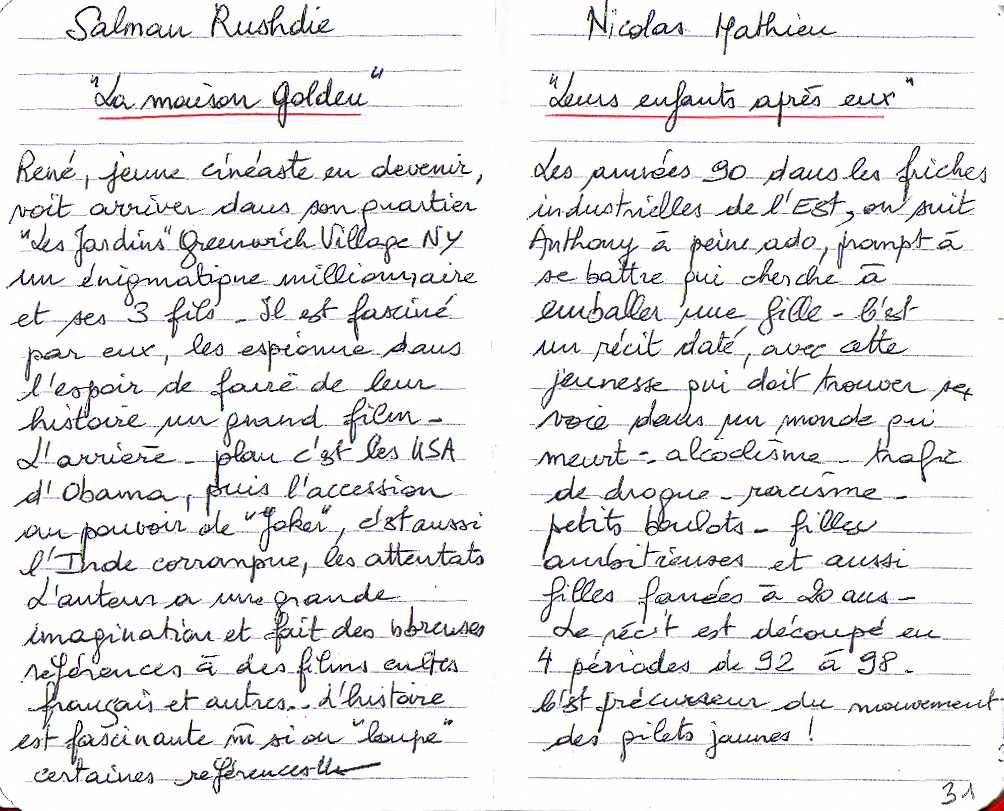 Salman Rushdie
"La maison Golden"
René, jeune cinéaste en devenir,
voit arriver dans son quartier
"Les Jardins" Greenwich Village NY
un énigmatique millionnaire
et ses 3 fils - Il est fasciné
par eux, les espionne dans
l'espoir de faire de leur
histoire un grand film -
L'arrière - plan c'est les USA
d'Obama, puis l'accession
au pouvoir de "Joker", c'est aussi
l'Inde corrompue, les attentats
L'auteur a une grande
imagination et fait des nbreuses
références à des films cultes
français et autres... L'histoire
est fascinante m̄ si on "loupe"
certaines références
Nicolas Mathieu
"Leurs enfants après eux"
Les années 90 dans les friches
industrielles de l'Est, on suit
Anthony à peine ado, prompt à
se battre qui cherche à
emballer une fille - C'est
un récit daté, avec cette
jeunesse qui doit trouver sa
voie dans un monde qui
meurt - alcoolisme - trafic
de drogue - racisme -
petits boulots - filles
ambitieuses et aussi
filles fanées à 20 ans -
Le récit est découpé en
4 périodes de 92 à 98 -
C'est précurseur du mouvement
des gilets jaunes !
31